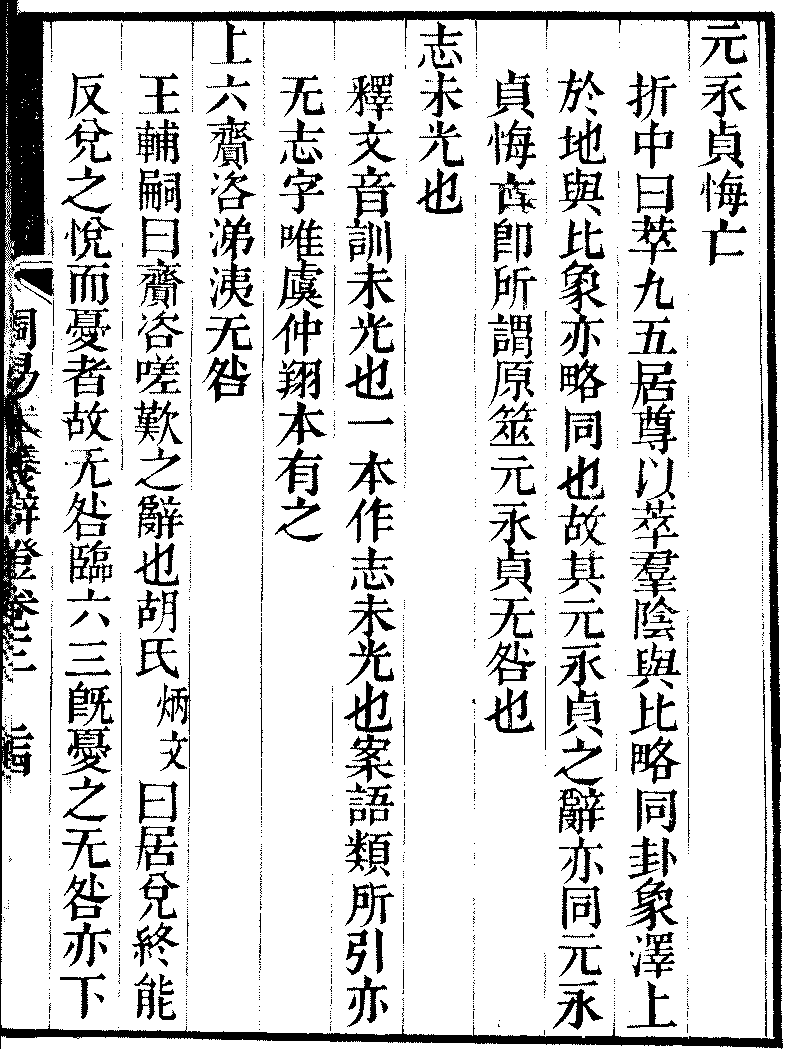 元永貞悔亡
折中曰萃九五居尊以萃羣陰與比略同卦象澤上
於地與比象亦略同也故其元永貞之辭亦同元永
貞悔亡即所謂原筮元永貞无咎也
志未光也
釋文音訓未光也一本作志未光也案語類所引亦
无志字唯虞仲翔本有之
上六齎咨涕洟无咎
王輔嗣曰齎咨嗟歎之辭也胡氏炳文曰居兌終能
反兌之悅而憂者故无咎臨六三旣憂之无咎亦下
周易本義辯證卷三